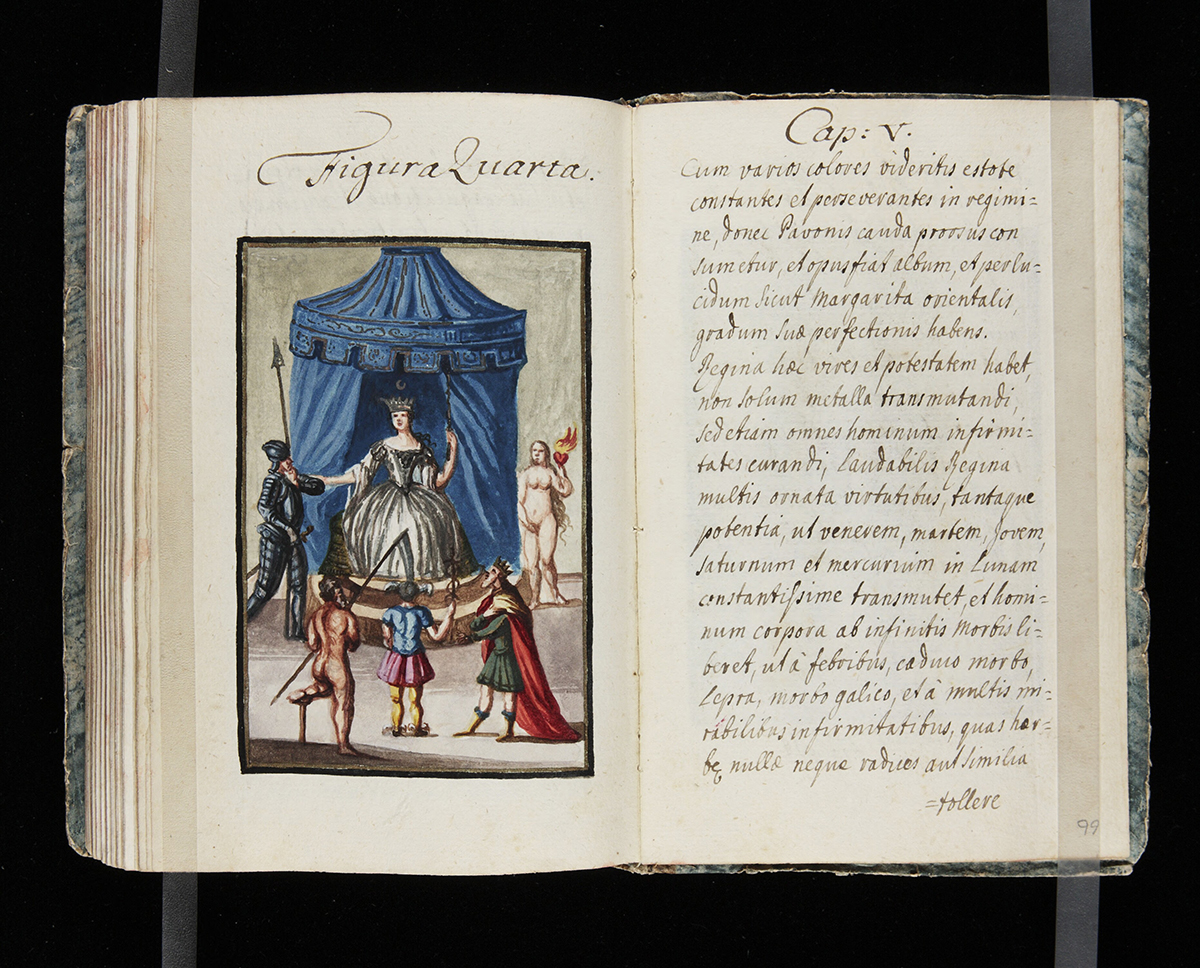 Figura Quarta.
Cap: V.
Cum varios colores videritis estote
constantes et perseverantes in regimi=
ne, donec Pavonis cauda prorsus con
sumetur, et opus fiat album, et perlu=
cidum sicut Margarita orientalis,
gradum suæ perfectionis habens.
Regina hæc vires et potestatem habet,
non solum metalla transmutandi,
sed etiam omnes hominum infirmi=
tates curandi, Laudabilis Regina
multis ornata virtutibus, tantaque
potentia, ut venerem, martem, Jovem,
saturnum et mercurium in Lunam
constantissime transmutet, et homi=
num corpora ab infinitis Morbis li=
beret, ut à febribus, caduco morbo,
Lepra, morbo galico, et à multis mi=
rabilibus infirmitatibus, quas hær=
bę nullæ neque radices aut similia
=tollere
99